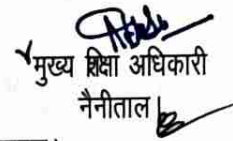 मुख्य शिक्षा अधिकारी
नैनीताल